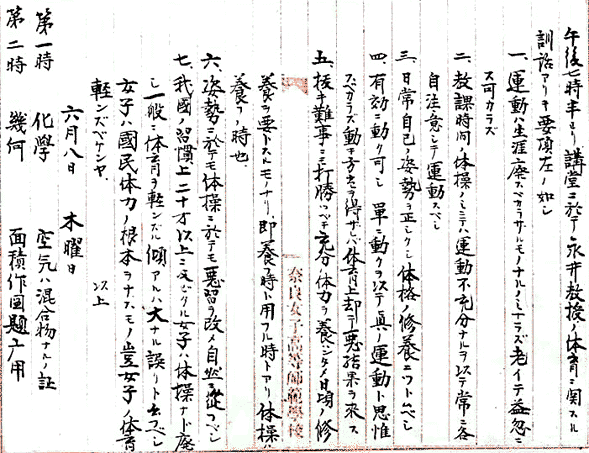 午後七時半ヨリ講堂ニ於テ永井教授ノ体育ニ関スル
訓話アリキ要項左ノ如シ
一、運動ハ生涯廃スベカラザルモノナルノミナラズ老イテ益忽ニ
ス可カラズ
二、教課時間ノ体操ノミニテハ運動不充分ナルヲ以テ常ニ各
自注意シテ運動スベシ
三、日常自己ノ姿勢ヲ正シクシ体格ノ修養ニツトムベシ
四、有効ニ動ク可シ 単ニ動クヲ以テ真ノ運動ト思惟
スベカラズ動キ方其ヲ得ザレバ体育上却テ悪結果ヲ来ス
五、抜キ難事ニ打勝ツベキ充分ノ体力ヲ養ハンタメ日頃ノ修
奈良女子高等師範學校
養ヲ要トスルモノナリ、即養フ時ト用フル時トアリ体操ハ
養フノ時也、
六、姿勢ニ於テモ体操ニ於テモ悪習ヲ改メ自然ニ従フベシ
七、我國ノ習慣上二十才以上ニ及ビタル女子ハ体操ナド廃
シ一般ニ体育ヲ軽ンズル傾アルハ大ナル誤リト云フベシ
女子ハ國民体力ノ根本ヲナスモノ豈女子ノ体育
軽ンズベケンヤ、 以上
六月八日 木曜日
第一時 化學 空気ハ混合物ナルノ証
第二時 幾何 面積作図題ノ應用